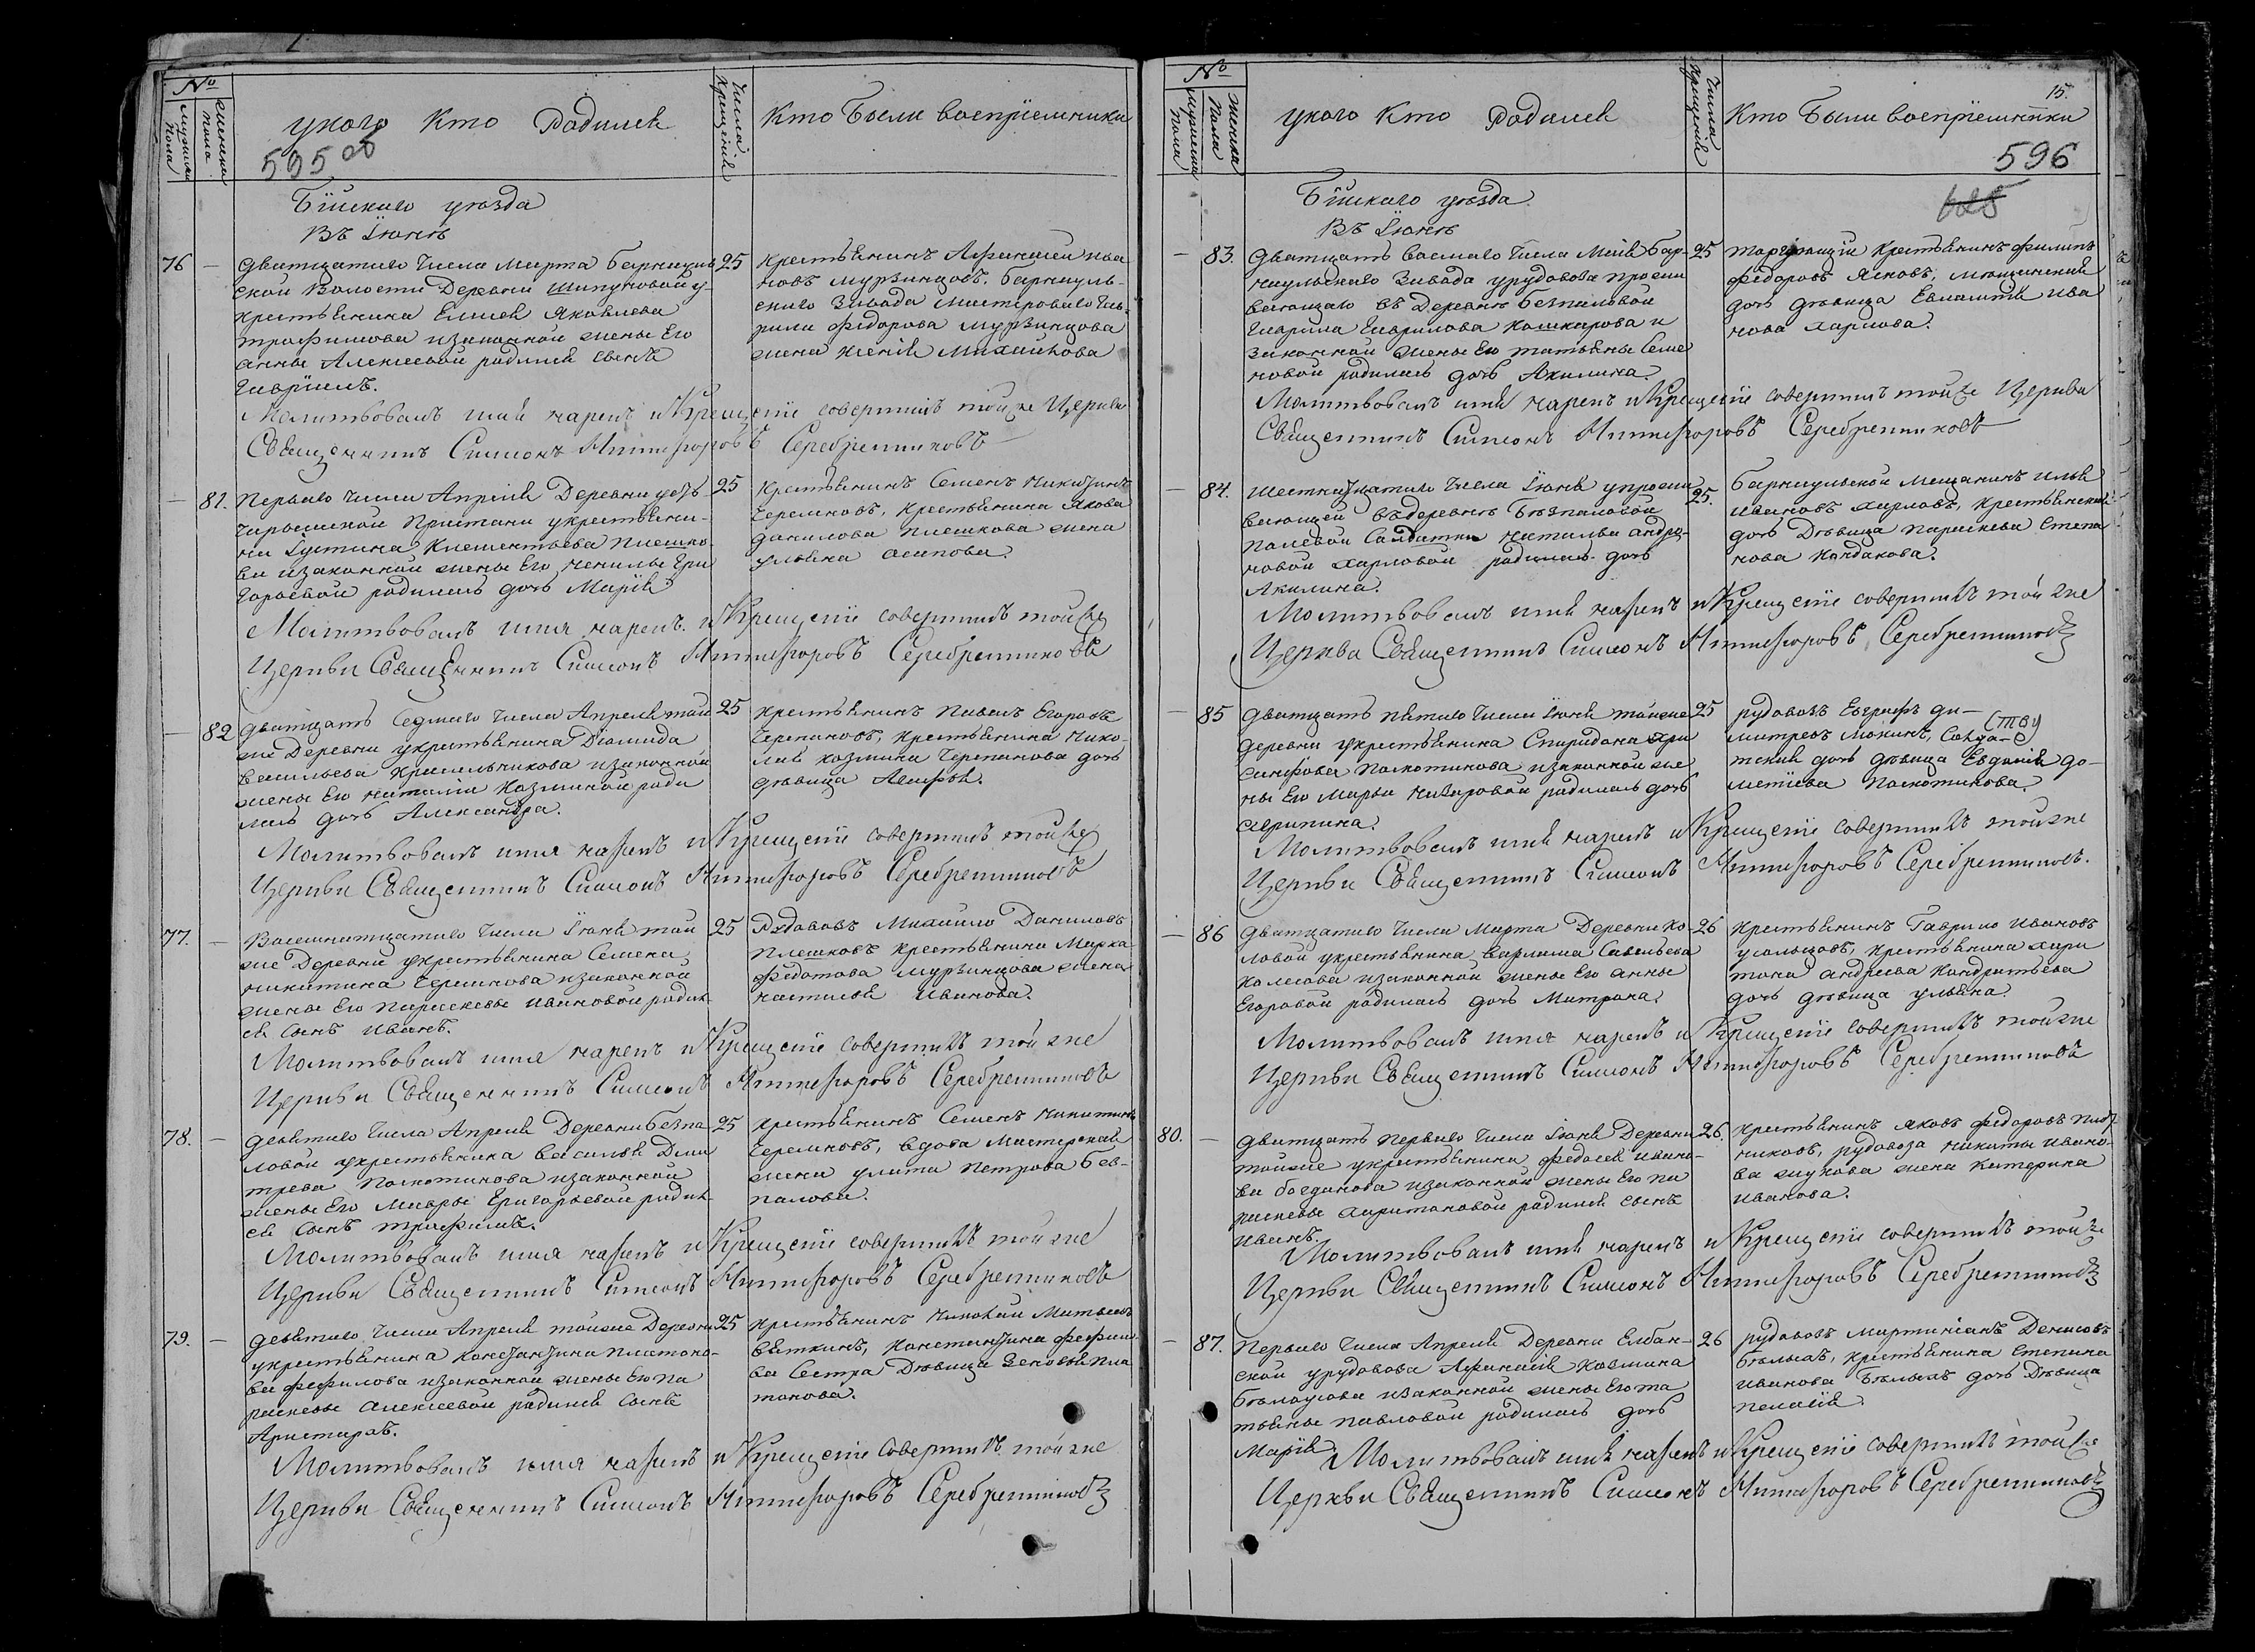 №
мужеска пола
женска пола
у кого Кто Родился
595 об
числа крещенiя
Кто Были восприемники
Бiйскаго уезда
Въ Iюнѣ
76 — Дватцатаго числа Марта Барнауль
ской Волости Деревни Шипуновой у
крестьянина Елисея Яковлева
трофимова изаконной жены Его
анны Алексеевой родился сынъ
Гаврiилъ.
25 Крестьянинъ Афанасей ива
новъ мурзинцовъ. барнауль-
скаго Завода мастероваго Гав-
рилы Федорова Мурзинцова
жена ксенiя Михайлова
Молитвовалъ имя нарекъ и Крещенiе совершилъ тойже Церкви
Священникъ Симеонъ Никифоровъ Серебренниковъ
— 81. Перваго числа Апреля Деревни усть-
чарышской Пристани укрестьяни-
на Iустина Клементьева Плешко-
ва изаконной жены Его ненилы Гри
горьевой родилась дочь Марiя
25 Крестьянинъ Семенъ Никитинъ
Черемновъ, крестьянина Якова
данилова Плешкова жена
ульяна осипова.
Молитвовалъ имя нарекъ. и Крещенiе совершилъ тойже
Церкви Священникъ Симеонъ Никифоровъ Серебренниковъ
— 82 дватцать седмаго числа Апреля той
же Деревни укрестьянина Дiомида
васильева Красильникова изаконной
жены Его наталiи Козминой роди
лась дочь Александра.
25 крестьянинъ Павелъ Егоровъ
Черепановъ, крестьянина Нико-
лая козмина Черепанова дочь
девица Агафья.
Молитвовалъ имя нарекъ и Крещенiе совершилъ тойже
Церкви Священникъ Симеонъ Никифоровъ Серебренниковъ
77. — Восемнатцатаго числа Iюня той
же Деревни укрестьянина Семена
никитина Черемнова изаконной
жены Его Параскевы ивановой родил-
ся сынъ иванъ.
25 Рудовозъ Михайло Даниловъ
Плешковъ крестьянина Марка
Федотова мурзинцова жена
настасья иванова.
Молитвовалъ имя нарекъ и Крещенiе совершилъ той же
Церкви Священникъ Симеонъ Никифоровъ Серебренниковъ
78. — девятаго числа Апреля Деревни безпа
ловой укрестьянина василья Дми
трева Поскотинова изаконной
жены Его Мавры Григорьевой родил-
ся сынъ трофимъ.
25 крестьянинъ Семенъ никитинъ
Черемновъ, вдова Мастерская
жена улита петрова без-
палова.
Молитвовалъ имя нарекъ и Крещенiе совершилъ той же
Церкви Священникъ Симеонъ Никифоровъ Серебренниковъ
79. — девятаго числа Апреля тойже Деревни
укрестьянина константина платоно-
ва фефилова изаконной жены Его па
раскевы Алексеевой родился сынъ
Аристархъ.
25 крестьянинъ Николай Матвеевъ
вяткинъ, константина фефило-
ва сестра Девица зеновья пла
тонова.
Молитвовалъ имя нарекъ и Крещенiе совершилъ той же
Церкви Священникъ Симеонъ Никифоровъ Серебренниковъ
№
мужеска пола
женска пола
у кого Кто Родился
числа крещенiя
15.
Кто Были восприемники
596
625
Бiйскаго уезда
Въ Iюнѣ
— 83. двадцать восмаго числа Маiя Бар-
наульскаго Завода урудовоза прожи
вающаго въ Деревнѣ безпаловой
Гаврила Гаврилова Кошкарова и
законной жены Его татьяны Семе
новой родилась дочь Акилина.
25 торгующiй крестьянинъ филипъ
федоровъ Ясновъ, мещанская
дочь девица Евлампiя ива
нова харлова.
Молитвовалъ имя нарекъ и Крещенiе совершилъ тойже Церкви
Священникъ Симеонъ Никифоровъ Серебренниковъ
— 84. шестнатцатаго числа Iюня упрожи
вающей въ деревнѣ Безпаловой
полевой Салдатки натальи андро-
новой харловой родилась дочь
Акилина.
25. барнаульской Мещанинъ илья
ивановъ харловъ, крестьянская
дочь Девица параскева степа
нова кондакова.
Молитвовалъ имя нарекъ и Крещенiе совершилъ той же
Церкви Священникъ Симеонъ Никифоровъ Серебренниковъ
— 85 Двадцать пятаго числа Iюня тойже
деревни укрестьянина Спиридона хри
санфова Поскотинова изаконной же
ны Его Марьи назаровой родилась дочь
агрипина.
25 рудовозъ Евграфъ ди-
митревъ мокинъ, Салда-
тская дочь девица Евдокiя до-
метiева Поскотинова.
Молитвовалъ имя нарекъ и Крещенiе совершилъ той же
Церкви Священникъ Симеонъ Никифоровъ Серебренниковъ.
— 86 двадцатаго числа Марта Деревни ко-
ловой укрестьянина варлама Савельева
колесова изаконной жены Его анны
Егоровой родилась дочь Матрона.
26 крестьянинъ Гаврило ивановъ
усольцовъ, крестьянина хари
тона андреева кондратьева
дочь девица ульяна.
Молитвовалъ имя нарекъ и Крещенiе совершилъ той же
Церкви Священникъ Симеонъ Никифоровъ Серебренниковъ
80. — двадцать перваго числа Iюня Деревни
тойже укрестьянина федосея ивано-
ва богданова изаконной жены Его па
раскевы харитоновой родился сынъ
иванъ.
26. крестьянинъ яковъ федоровъ
рудовоза никиты ивано-
ва жукова жена катерина
иванова.
Молитвовалъ имя нарекъ и Крещенiе совершилъ той же
Церкви Священникъ Симеонъ Никифоровъ Серебренниковъ
— 87. Перваго числа Апреля Деревни Елбан-
ской урудовоза Афанасiя козмина
белоусова изаконной жены Его та
тьяны павловой родилась дочь
Марiя.
26 рудовозъ Мартинiанъ Денисовъ
белыхъ, крестьянина степана
иванова Белыхъ дочь Девица
пелагiя.
Молитвовалъ имя нарекъ и Крещенiе совершилъ тойже
Церкви Священникъ Симеонъ Никифоровъ Серебренниковъ